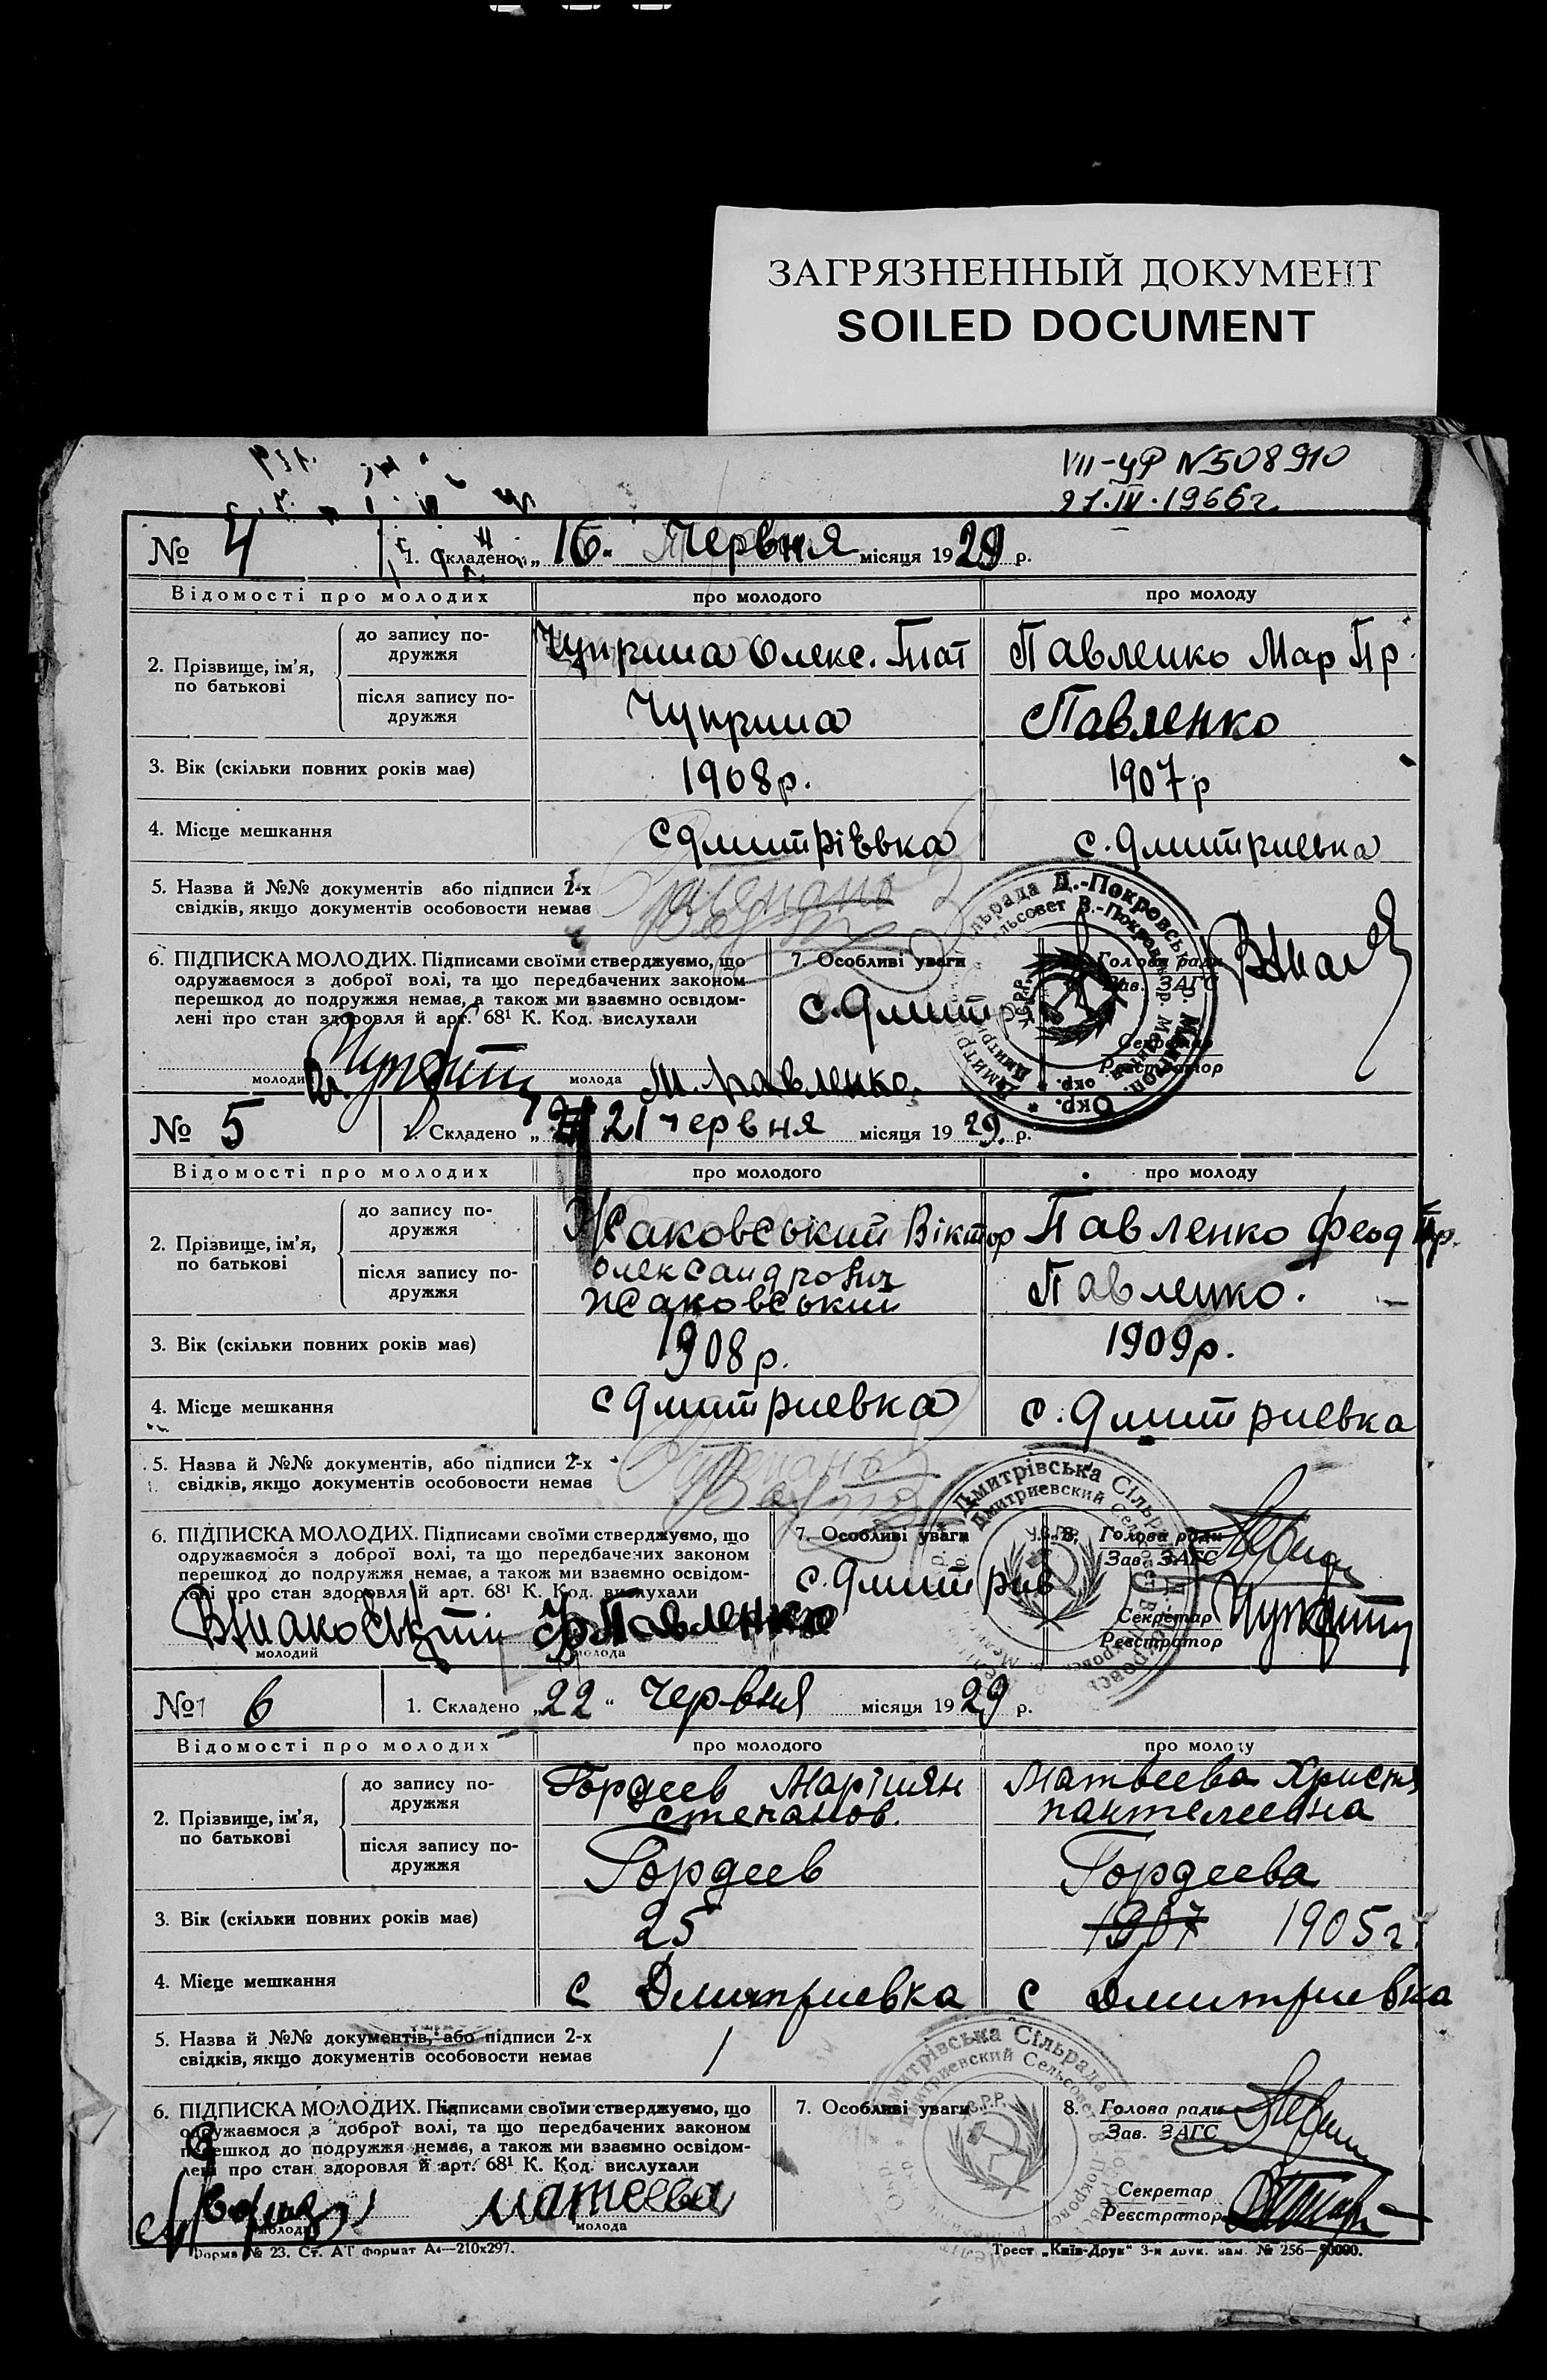 ЗАГРЯЗНЕННЫЙ ДОКУМЕНТ
SOILED DOCUMENT
VII-УР N508910
21.IV.1966г
№ 4 1. Складено „16" Червня місяця 1929 р.
Відомості про молодих про молодого про молоду
2. Прізвище, ім'я, по батькові
до запису подружжя Чуприна Олекс. Гнат Павленко Мар Пр.
після запису подружжя Чуприна Павленко
3. Вік (скільки повних років має) 1908р. 1907р
4. Місце мешкання с Дмитріївка с. Дмитриевка
5. Назва й №№ документів або підписи 2-х
свідків, якщо документів особовости немає
6. ПІДПИСКА МОЛОДИХ. Підписами своїми стверджуємо, що
одружаємося з доброї волі, та що передбачених законом
перешкод до подружжя немає, а також ми взаємно освідом-
лені про стан здоровля й арт. 68¹ К. Код. вислухали
молодий молода М. Павленко
7. Особливі уваги
с. Дмит
Голова ради
Зав. ЗАГС
Секретар
Реєстратор
№ 5 1. Складено „ 21 червня місяця 1929. р.
Відомості про молодих про молодого про молоду
2. Прізвище, ім'я, по батькові
до запису подружжя Жаковський Віктор Павленко Феод Пр.
Олександрович
після запису подружжя Жаковський Павленко.
3. Вік (скільки повних років має) 1908р. 1909р.
4. Місце мешкання с Дмитриевка с. Дмитриевка
5. Назва й №№ документів, або підписи 2-х
свідків, якщо документів особовости немає
6. ПІДПИСКА МОЛОДИХ. Підписами своїми стверджуємо, що
одружаємося з доброї волі, та що передбачених законом
перешкод до подружжя немає, а також ми взаємно освідом-
лені про стан здоровля й арт. 68¹ К. Код. вислухали
молодий Ф Павленко молода
7. Особливі уваги
с. Дмитрив
8. Голова ради
Зав. ЗАГС
Секретар
Реєстратор
Дмитрівська Сільрада
Дмитриевский Сельсовет
№ 6 1. Складено „22" Червня місяця 1929 р.
Відомості про молодих про молодого про молоду
2. Прізвище, ім'я, по батькові
до запису подружжя Гордеев Маріиян Матвеева Христя
степанов. пантелеевна
після запису подружжя Гордеев Гордеева
3. Вік (скільки повних років має) 25 1907 1905г.
4. Місце мешкання с Дмитриевка с Дмитриевка
5. Назва й №№ документів, або підписи 2-х
свідків, якщо документів особовости немає
6. ПІДПИСКА МОЛОДИХ. Підписами своїми стверджуємо, що
одружаємося з доброї волі, та що передбачених законом
перешкод до подружжя немає, а також ми взаємно освідом-
лені про стан здоровля й арт. 68¹ К. Код. вислухали
молодий молода
7. Особливі уваги
8. Голова ради
Зав. ЗАГС
Секретар
Реєстратор
Дмитрівська Сільрада
Дмитриевский Сельсовет
Форма № 23. Ст. АТ формат А4—210х297. Трест „Київ-Друк" 3-я друк. зам. № 256—50000.